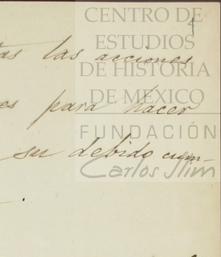 CENTRO DE
ESTUDIOS
DE HISTORIA
DE MÉXICO
FUNDACIÓN
Carlos Slim
las acciones
para hacer
su debido cum-